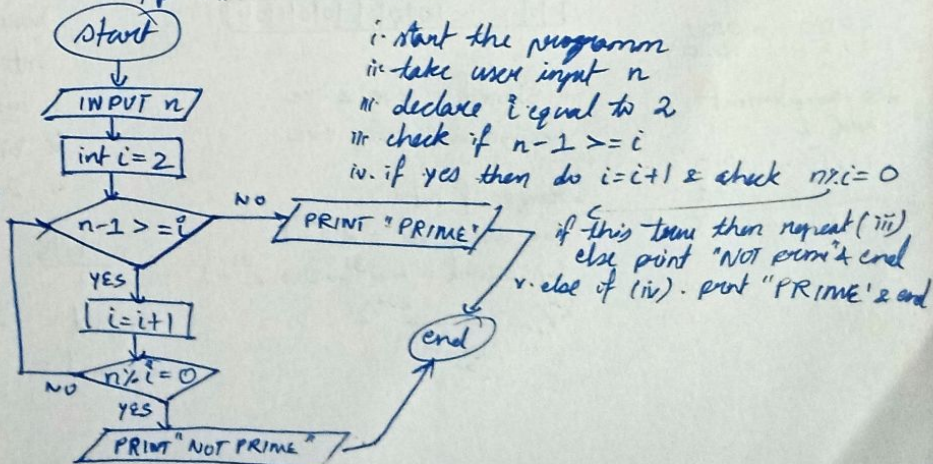 start
INPUT n
int i = 2
n-1 >= i
NO
PRINT "PRIME"
YES
i = i+1
n%i = 0
NO
YES
PRINT "NOT PRIME"
end
i. start the programm
ii. take user input n
iii. declare i equal to 2
iii. check if n-1 >= i
iv. if yes then do i=i+1 & check n%i=0
if this true then repeat (iii)
else print "NOT prime" & end
v. else if (iv). print "PRIME' & end